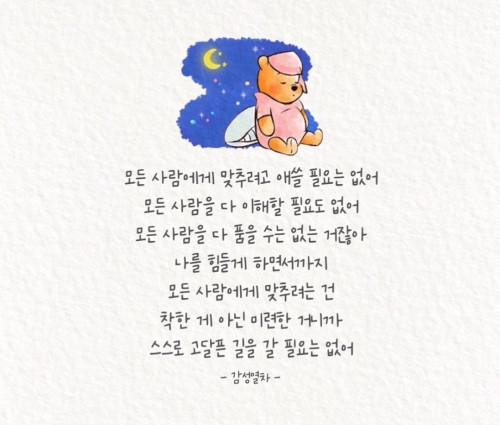 모든 사람에게 맞추려고 애쓸 필요는 없어
모든 사람을 다 이해할 필요도 없어
모든 사람을 다 품을 수는 없는 거잖아
나를 힘들게 하면서까지
모든 사람에게 맞추려는 건
착한 게 아닌 미련한 거니까
스스로 고달픈 길을 갈 필요는 없어
- 감성열차 -